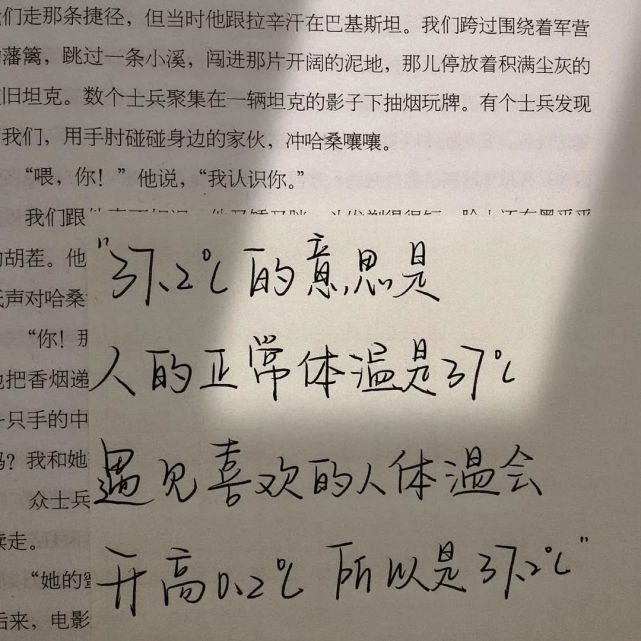 们走那条捷径，但当时他跟拉辛汗在巴基斯坦。我们跨过围绕着军营
藩篱，跳过一条小溪，闯进那片开阔的泥地，那儿停放着积满尘灰的
旧坦克。数个士兵聚集在一辆坦克的影子下抽烟玩牌。有个士兵发现
我们，用手肘碰碰身边的家伙，冲哈桑嚷嚷。
“喂，你！”他说，“我认识你。”
我们跟
胡茬。他
声对哈桑
“你！那
把香烟递
只手的中
吗？我和她
众士兵
走。
“她的
后来，电影
"37.2℃的意思是
人的正常体温是37℃
遇见喜欢的人体温会
开高0.2℃ 所以是37.2℃"